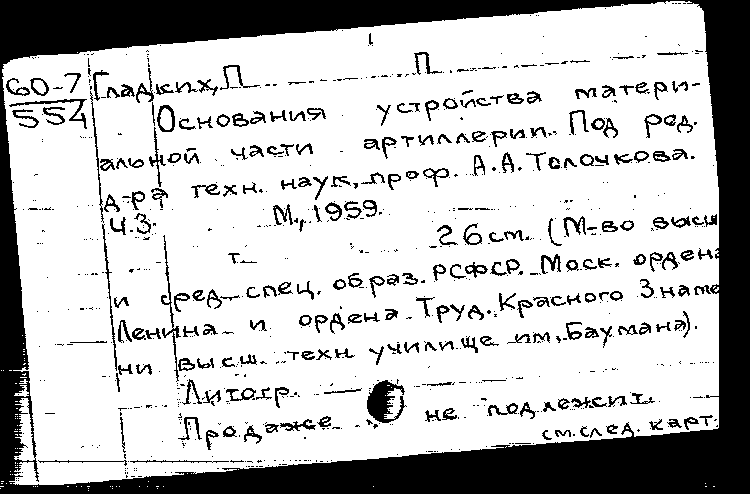 60-7 Гладких, П П
554 Основания устройства матери-
альной части артиллерии. Под ред.
д-ра техн. наук, проф. А.А. Толочкова.
Ч.3. М., 1959.
т. 26 см. (М-во высш
и сред. спец. образ. РСФСР. Моск. ордена
Ленина и ордена Труд. Красного Знаме
ни высш. техн училище им. Баумана).
Литогр.
Продаже не подлежит.
см. след. карт.